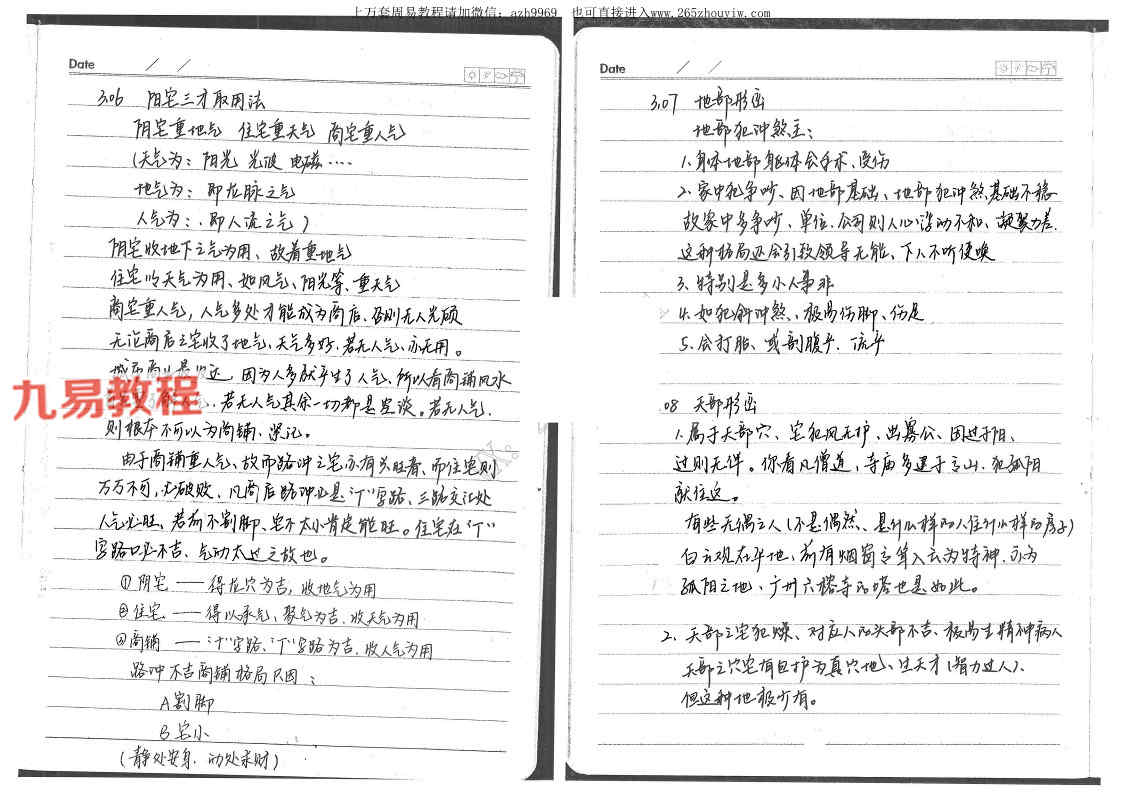 上万套周易教程请加微信：azh9969 也可直接进入www.265zhouyiw.com
Date / /
3.06 阳宅三才取用法
阴宅重地气 住宅重天气 商宅重人气
(天气为：阳光 光波 电磁····
地气为：即龙脉之气
人气为：.即人流之气)
阴宅收地下之气为用、故着重地气
住宅以天气为用、如风气、阳光等、重天气
商宅重人气，人气多处才能成为商店、否则无人光顾
无论商店之宅收了地气、天气多好、若无人气、亦无用。
因为人多就产生了人气、所以看商铺风水
若无人气其余一切都是空谈。若无人气、
则根本不可以为商铺、谨记。
由于商铺重人气、故而路冲之宅亦有兴旺者、而住宅则
万万不可，必破败、凡商店路冲必是"丁"字路、三路交汇处
人气必旺、若前不割脚、宅不太小肯定能旺。住宅在"丁"
字路口必不吉、气动太过之故也。
①阴宅 —— 得龙穴为吉，收地气为用
②住宅 —— 得以承气、聚气为吉、收天气为用
③商铺 —— "十"字路、"丁"字路为吉、收人气为用
路冲不吉商铺格局只因：
A 割脚
B 宅小
(静处安身、动处求财)
九易教程
Date / /
3.07 地部形峦
地部犯冲煞主：
1.身体地部身体会手术、受伤
2.家中犯争吵、因地部基础、地部犯冲煞基础不稳
故家中多争吵、单位、公司则人心浮动不和、凝聚力差.
这种格局还会引致领导无能、下人不听使唤
3、特别是多小人事非
4.如犯斜冲煞、极易伤脚、伤足
5.会打胎、或剖腹手、流手
08 天部形峦
1.属于天部穴、宅犯风无护、出寡公、因过于阳、
过则无伴。你看凡僧道，寺庙多建于高山、犯孤阳
就住这。
有些无偶之人(不是偶然、是什么样的人住什么样的房子)
白云观在平地、前有烟囱高耸入云为特神、亦为
孤阳之地、广州六榕寺的塔也是如此。
2、天部之宅犯煞、对应人的头部不吉、极易生精神病人
天部之穴宅有包护为真穴地、出天才(智力过人)、
但这种地极少有。